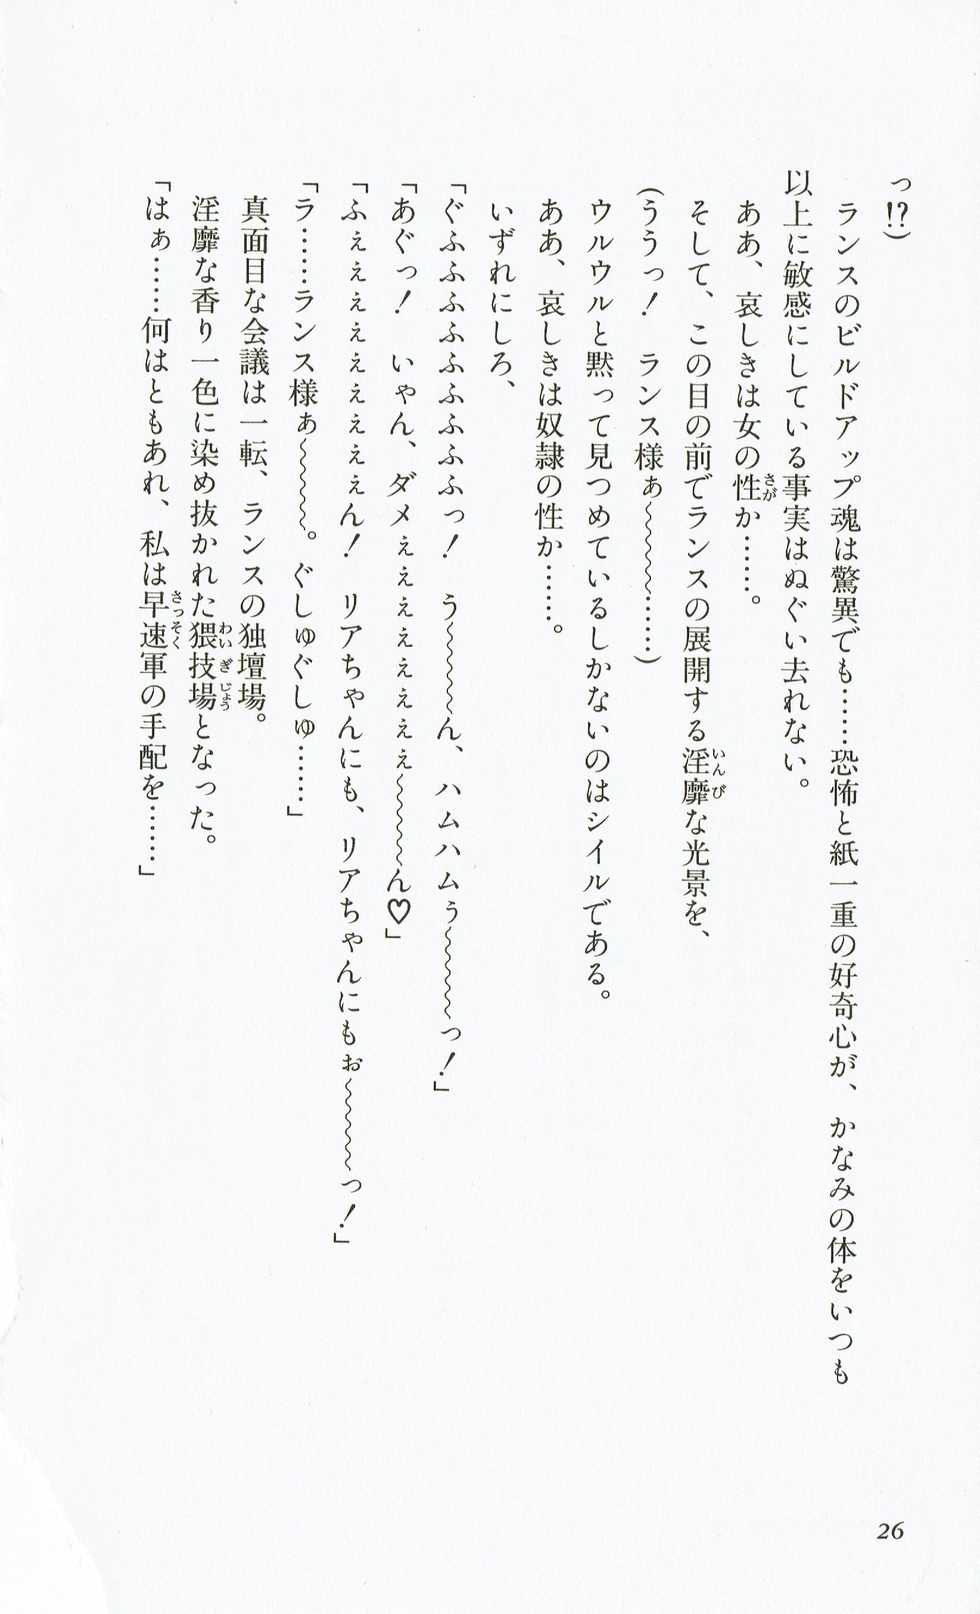 っ!?）
　ランスのビルドアップ魂は驚異でも……恐怖と紙一重の好奇心が、かなみの体をいつも
以上に敏感にしている事実はぬぐい去れない。
　ああ、哀しきは女の性か……。
　そして、この目の前でランスの展開する淫靡な光景を、
（ううっ！　ランス様ぁ～～～～……）
　ウルウルと黙って見つめているしかないのはシイルである。
　ああ、哀しきは奴隷の性か……。
　いずれにしろ、
「ぐふふふふふふふふっ！　う～～～～ん、ハムハムぅ～～～～っ！」
「あぐっ！　いゃん、ダメぇぇぇぇぇぇぇぇ～～～～ん♡」
「ふぇぇぇぇぇぇぇぇん！　リアちゃんにも、リアちゃんにもぉ～～～～っ！」
「ラ……ランス様ぁ～～～～。ぐしゅぐしゅ……」
　真面目な会議は一転、ランスの独壇場。
　淫靡な香り一色に染め抜かれた猥技場となった。
「はぁ……何はともあれ、私は早速軍の手配を……」
26